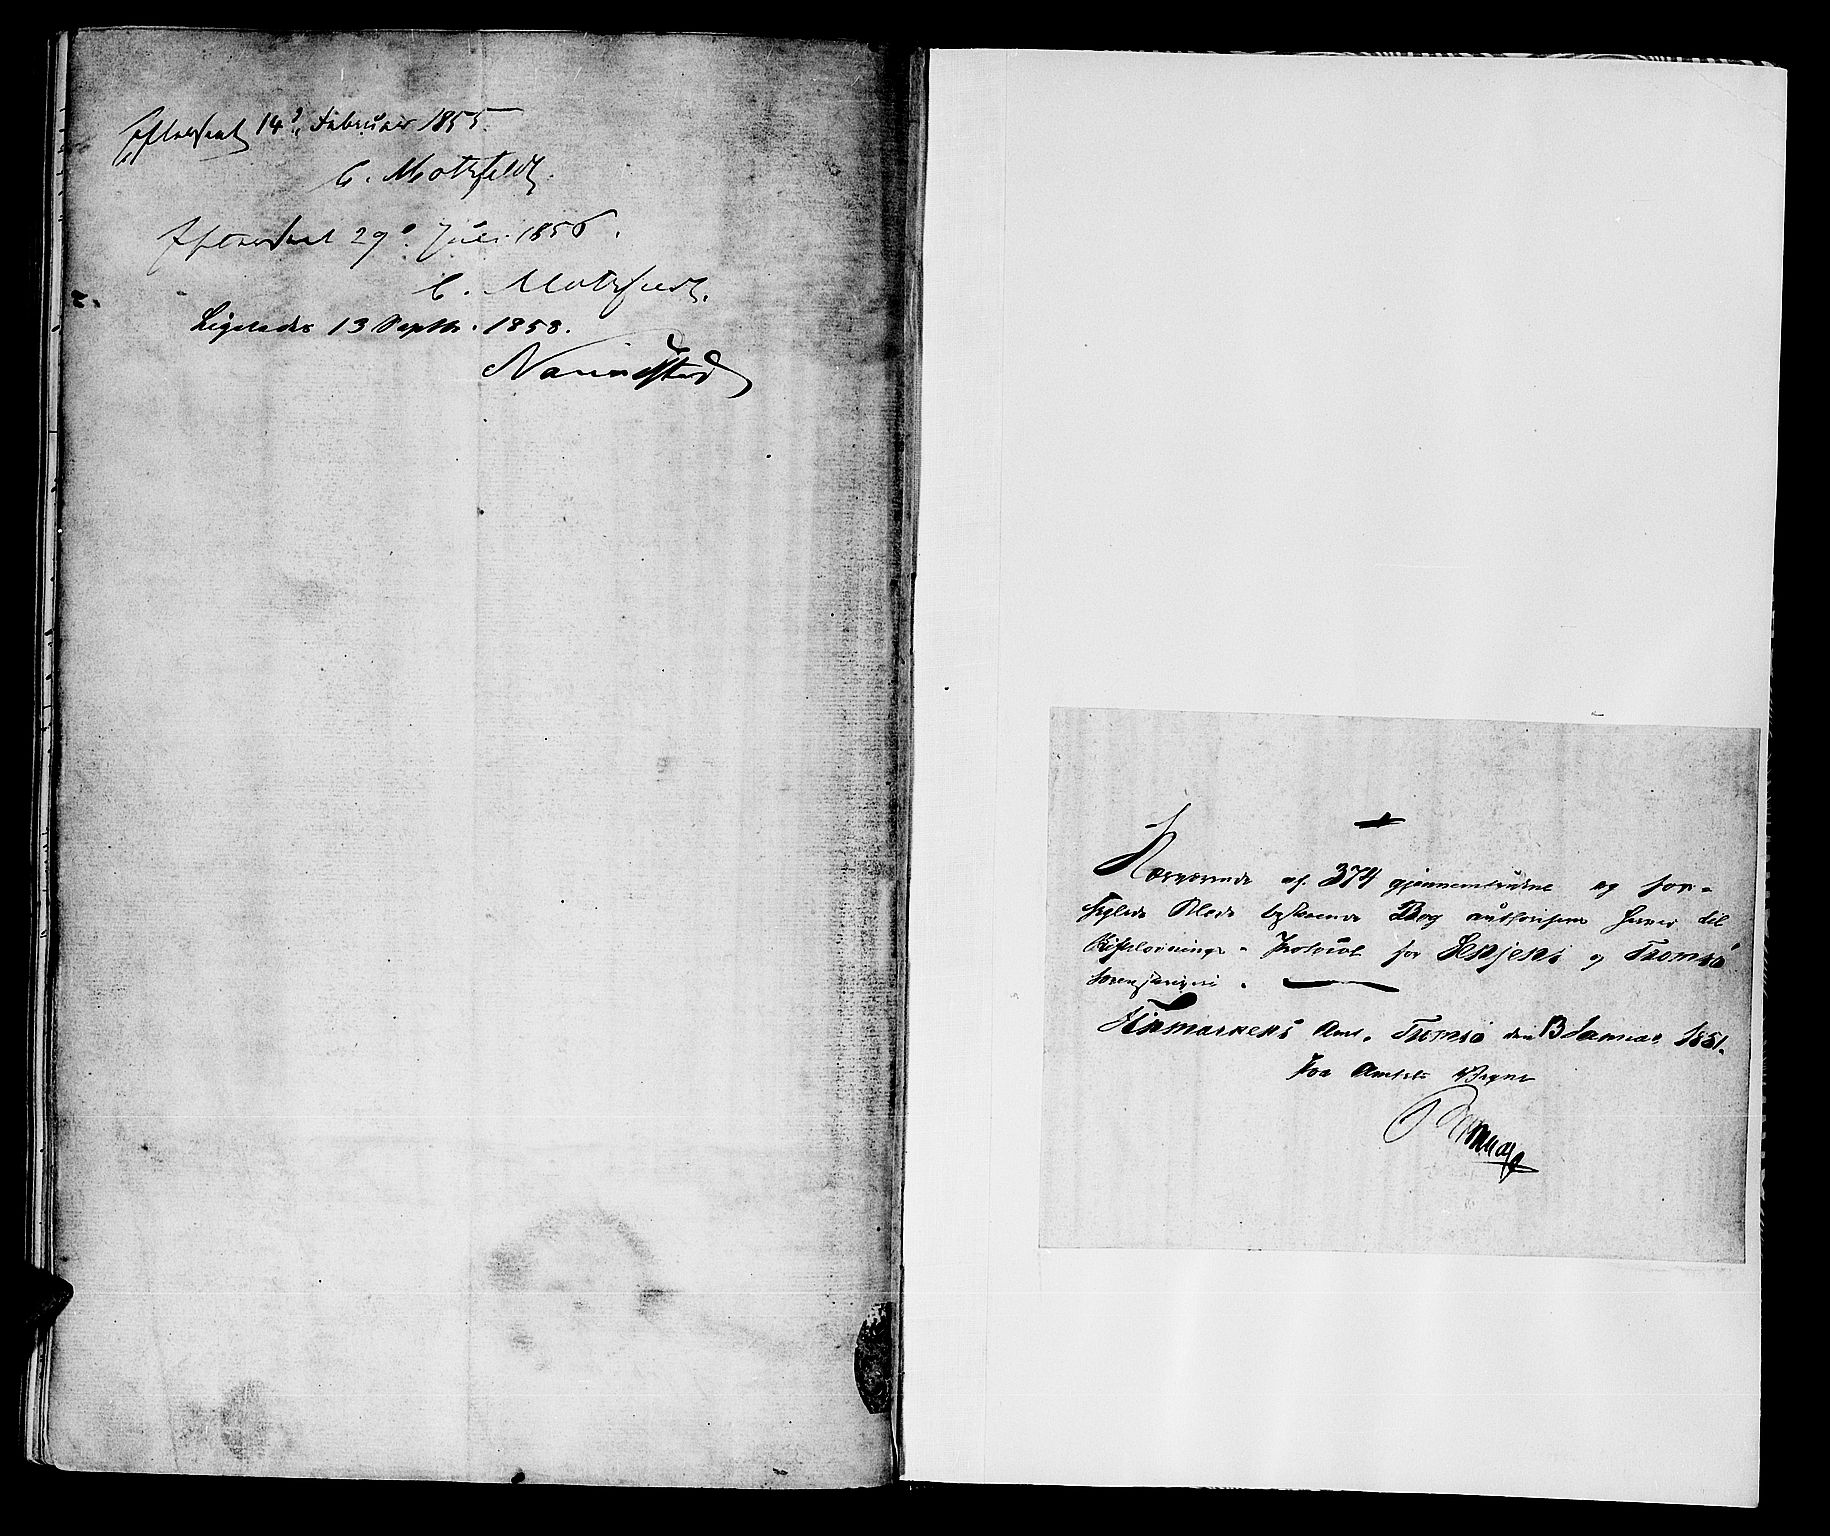 Efterseet 14de Februar 1855
C. Motzfeldt.
Efterseet 29de Juli 1856.
C. Motzfeldt.
Ligeledes 13 Septbr. 1858.
Nærværende af 374 gjennemtrukne og for-
seglede Blade bestaaende Bog authoriseres herved til
Skiftelovnings - Protocol for Senjens og Tromsø
Sorenskriveri.
Finmarkens Amt, Tromsø den 13 Januar 1851.
For Amtets Vegne